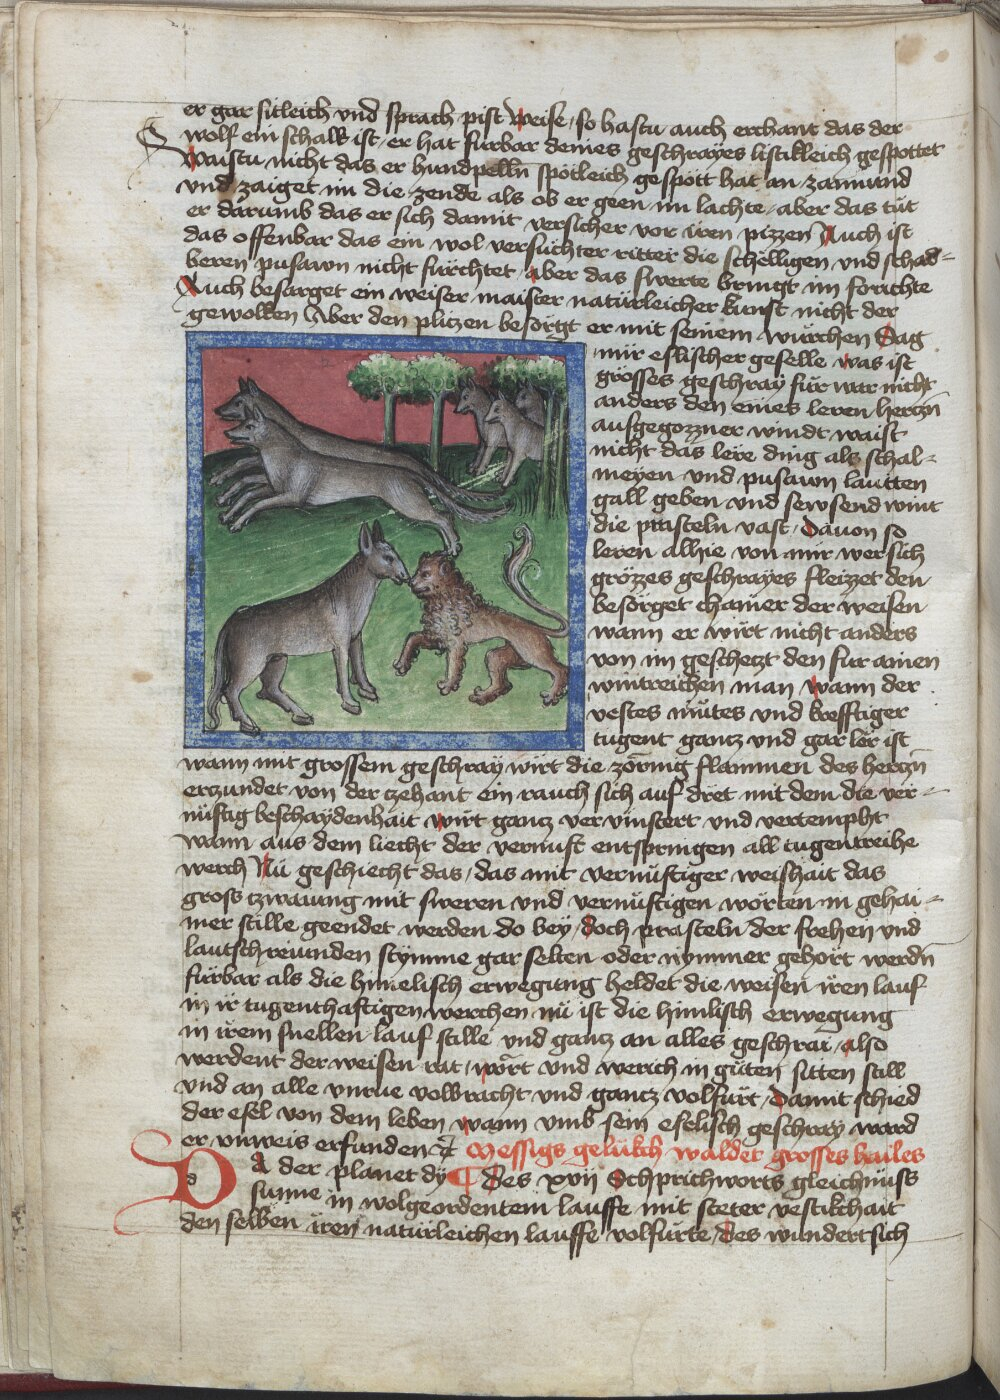 er gar sitleich vnd sprach pist weise so hastu auch erchant das der
wolf ein schalk ist er hat fürbar deines geschrayes listikleich gespottet
Waistu nicht das er hundpelln spötleich gespött hat an zannund
vnd zaiget im die zende als ob er geen im lachte aber das tüt
er darumb das er sich damit versicher vor iren pizzen Auch ist
das offenbar das ein wol versüchter ritter die schelligen vnd schad-
beren pusawn nicht fürchtet aber das swerte bringt im forichte
Auch besarget ein weiser maister natürleicher kunst nicht der
gewolken Aber den plitzen besörgt er mit seinem würchen Sag
mir eslischer geselle was ist
grösses geschray für war nicht
anders den eines leren herczn
ausgegozzner windt waist
nicht das lere ding als schal-
meyen vnd pusawn lautten
gall geben vnd sewsend wint
die prasteln vast davon so
leren alhie von mir wer sich
grözzes geschrayes fleizzet den
besörget chainer der weisen
wann er wirt nicht anders
von im geschetzt den für ainen
wintreichen man wann der
vestes mütes vnd krefftiger
tugent gantz vnd gar lër ist
wann mit grossem geschray wirt die zörnig flammen des herczn
erzundet von der zehant ein rauch sich auf dret mit dem die ver-
nüftig beschaydenhait wirt gancz vervinstert vnd vertempht
wann aus dem liecht der vernuft entspringen all tugentreihe
werch Nü geschiecht das das mit vernüftiger weishait das
gross czwaiung mit sweren vnd vernüftigen wörten in gehai-
mer stille geendet werden do bey doch prasteln der frehen vnd
lautschreiunden stymme gar selten oder nymmer gehört werdn
fürbar als die himelisch erwegung heldet die weisen iren lauf
in ir tugenthaftigen werchen nü ist die himlisch erwegung
in irem snellen lauf stille vnd gancz an alles geschrai also
werdent der weisen rat wört vnd werich in güten sitten still
vnd an alle vnrue volbracht vnd gancz volfürt damit schied
der esel von dem leben wann vmb sein eselisch geschray ward
er vnweis erfunden &c Messigs gelükch waldet grosses hailes
Da der planet dy Des xvii Schprichworts gleichnüss
sunne in wolgeordentem lauffe mit steter vestikchait
den selben iren natürleichen lauffe volfürte des wundert sich